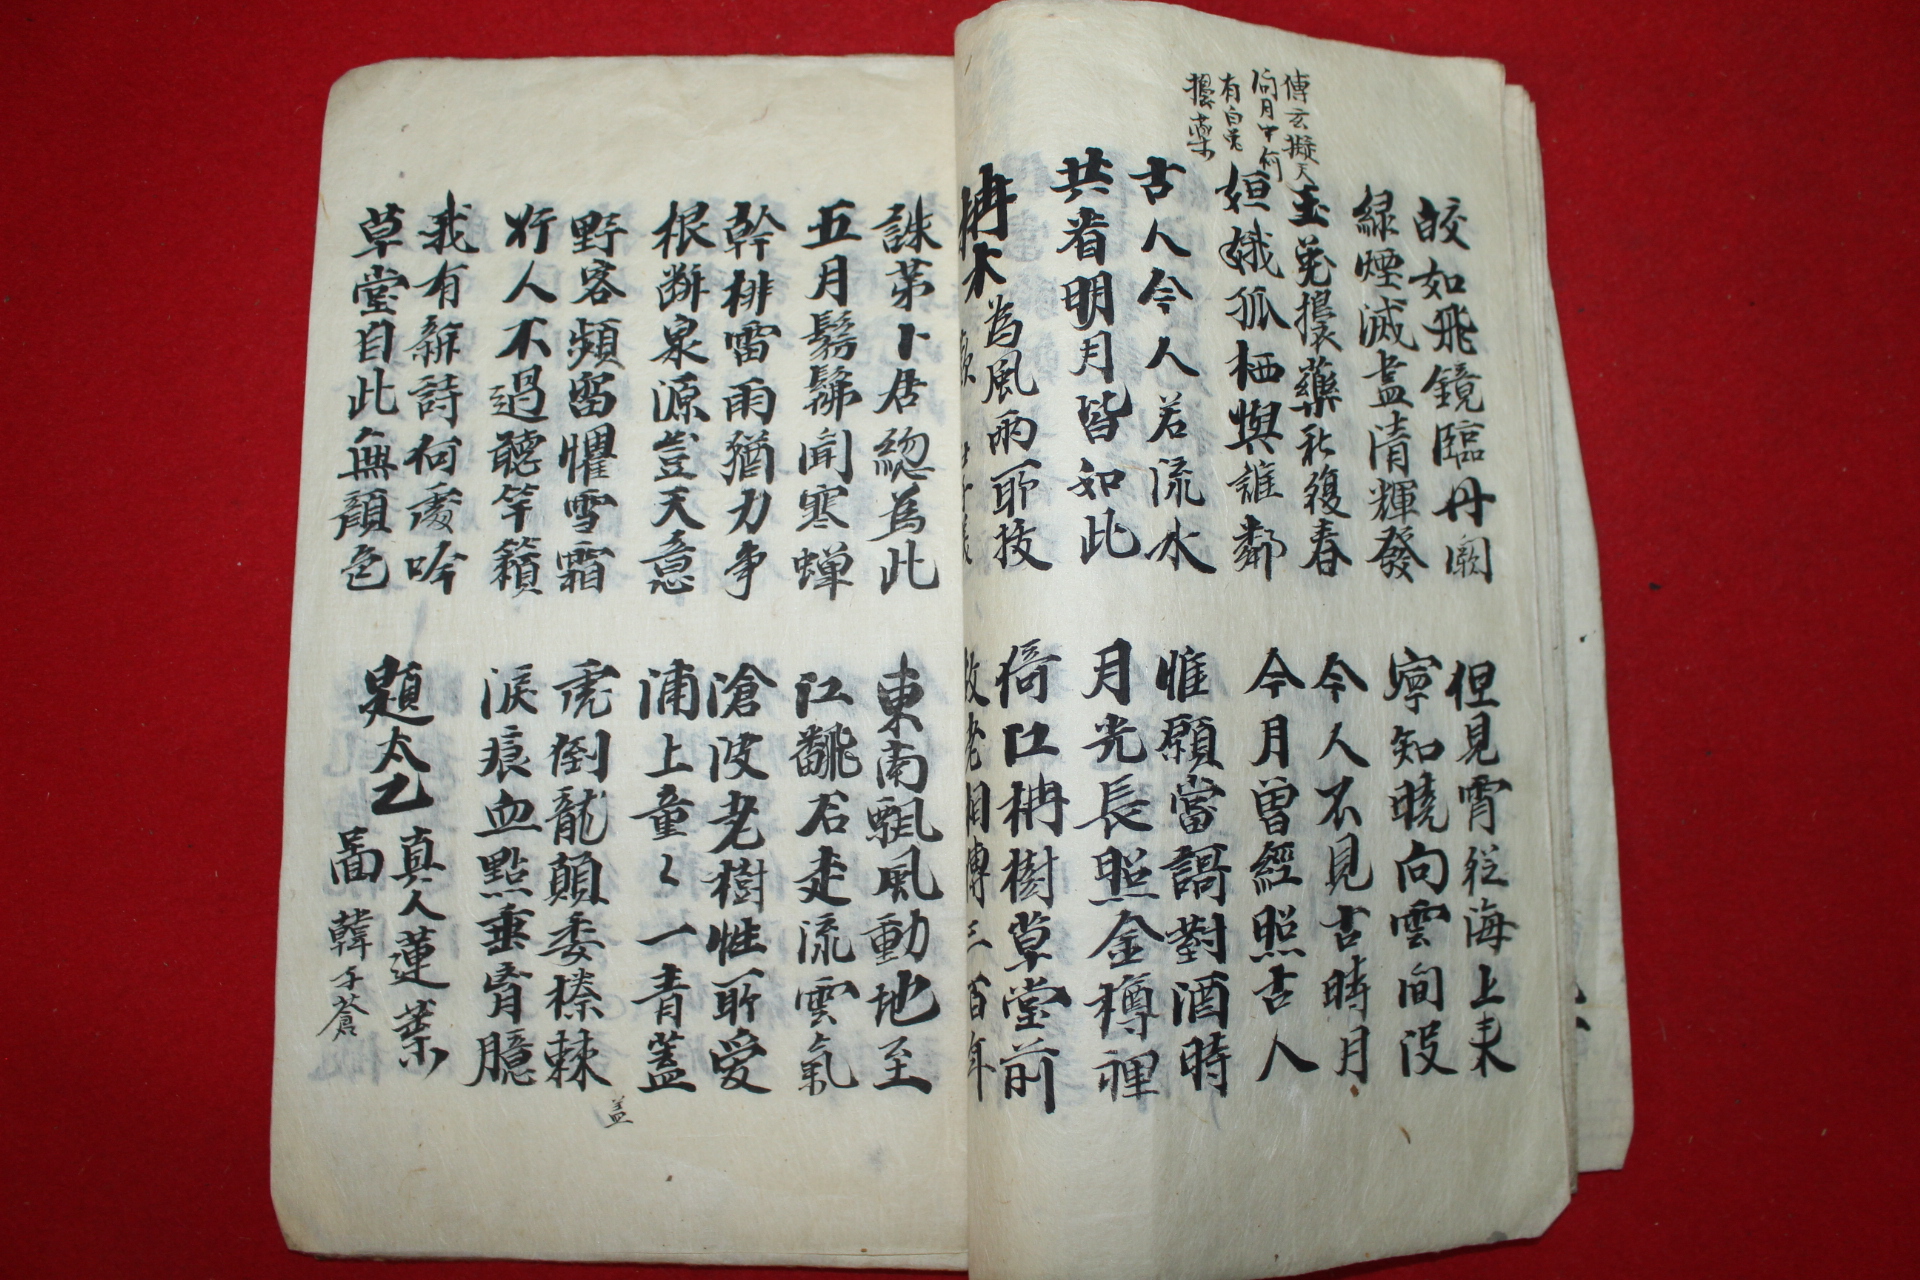 傅玄擬天
問月中何
有白兔
擣藥
皎如飛鏡臨丹闕
緑煙滅盡清輝發
但見宵從海上来
寧知曉向雲間沒
玉兔擣藥秋復春
姮娥孤栖與誰鄰
今人不見古時月
今月曾經照古人
古人今人若流水
共看明月皆如此
惟願當謌對酒時
月光長照金樽裡
枏木為風雨所拔
歎
倚江枏樹草堂前
故老相傳三百年
誅茅卜居緫為此
五月髣髴聞寒蟬
東南飄風動地至
江飜石走流雲氣
幹排雷雨猶力争
根断泉源豈天意
滄波老樹性所愛
浦上童〻一青蓋
盖
野客頻留懼雪霜
行人不過聽竽籟
虎倒龍顛委榛棘
淚痕血點垂胷臆
我有新詩何處吟
草堂自此無顔色
題太乙真人蓮葉
圖 韓子蒼